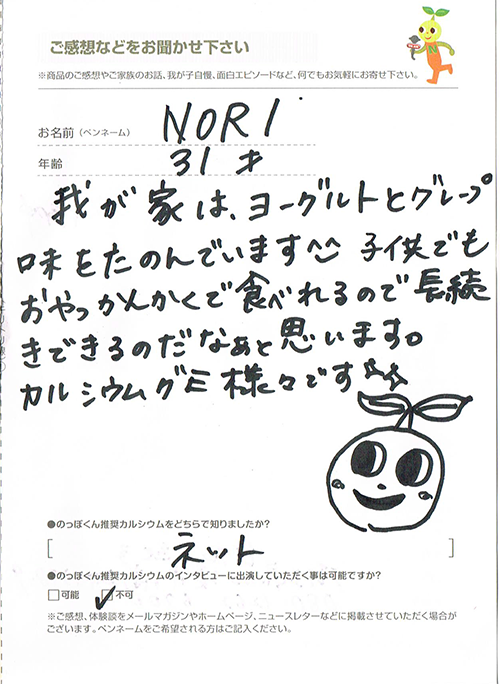 ご感想などをお聞かせ下さい
※商品のご感想やご家族のお話、我が子自慢、面白エピソードなど、何でもお気軽にお寄せ下さい。
N
お名前(ペンネーム) NORI
年齢 31才
我が家は、ヨーグルトとグレープ
味をたのんでいます^^ 子供でも
おやつかんかくで食べれるので長続
きできるのだなぁと思います。
カルシウムグミ様々です☆☆
●のっぽくん推奨カルシウムをどちらで知りましたか?
[ ネット ]
●のっぽくん推奨カルシウムのインタビューに出演していただく事は可能ですか?
□可能 ☑不可
※ご感想、体験談をメールマガジンやホームページ、ニュースレターなどに掲載させていただく場合が
ございます。ペンネームをご希望される方はご記入ください。